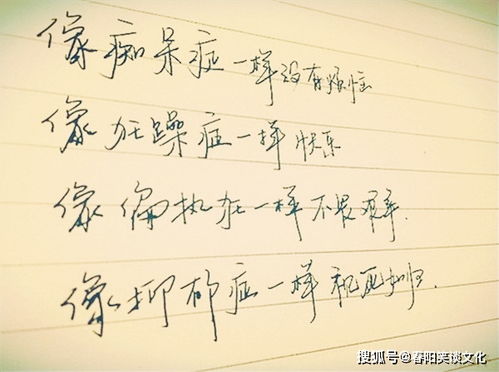 像痴呆症一样没有烦恼
像狂躁症一样快乐
像偏执狂一样不畏艰辛.
像抑郁症一样视死如归.
搜狐号@春阳笑谈文化